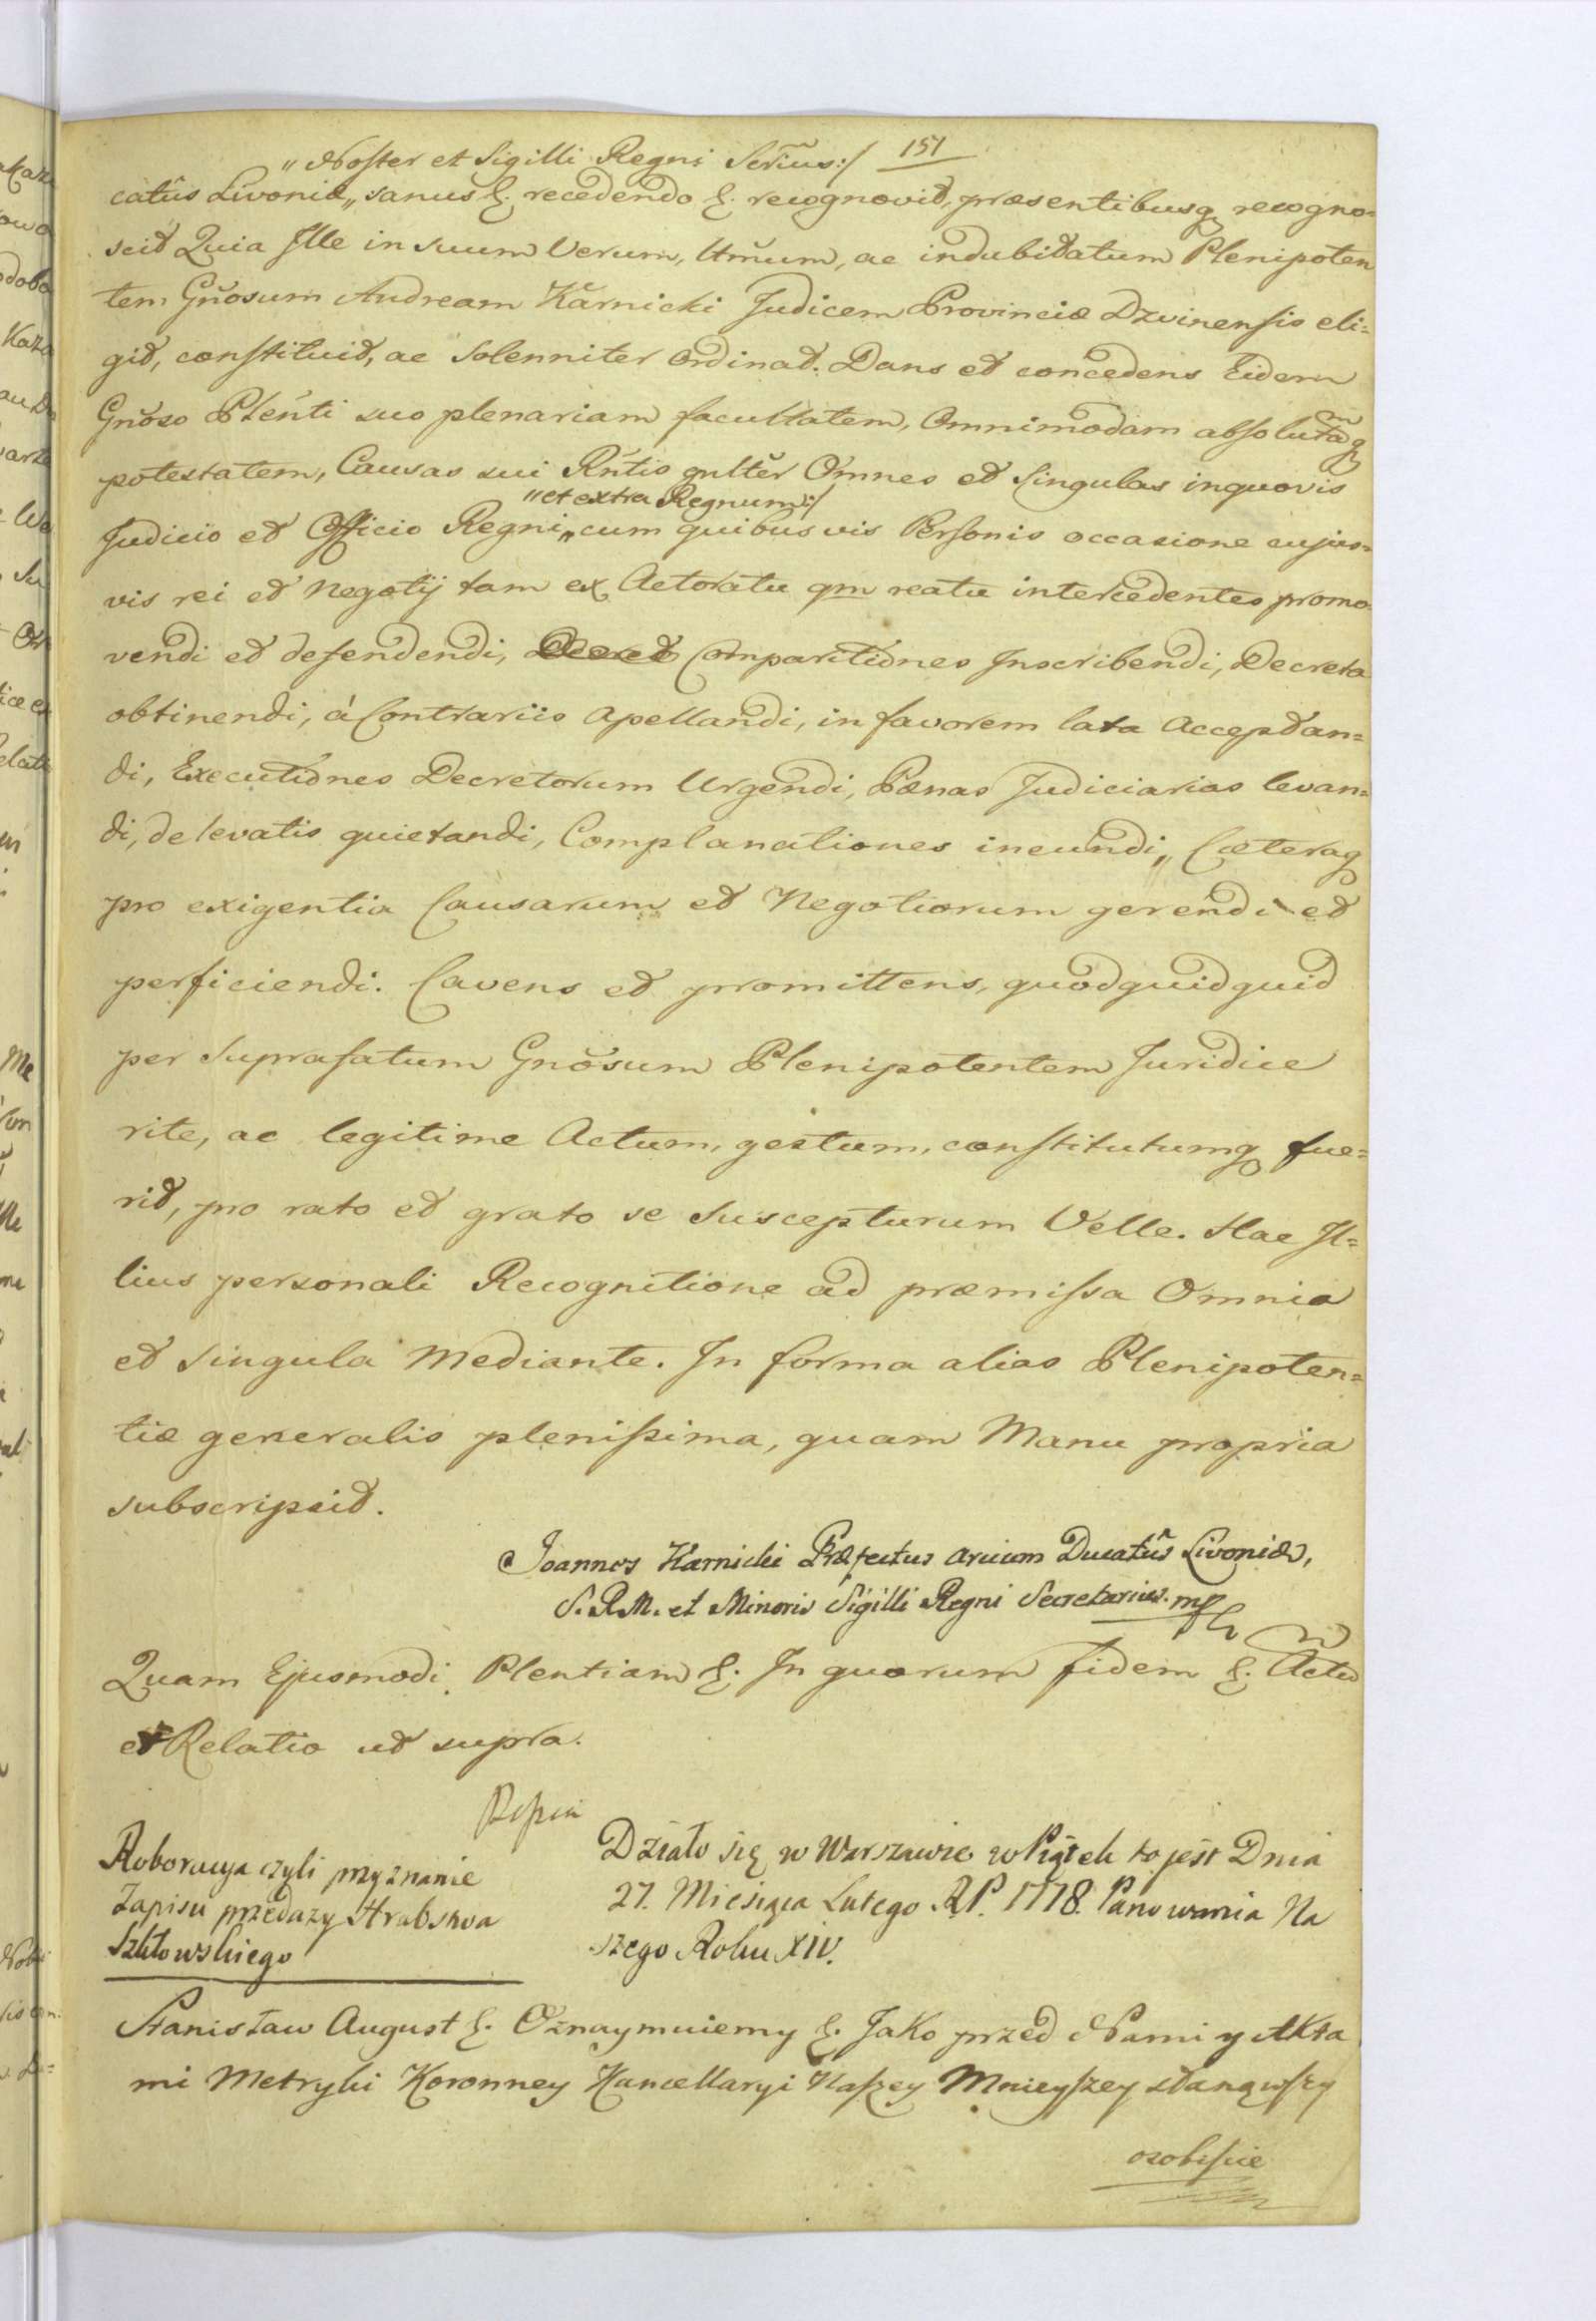 151
„Noster et Sigilli Regni Secr̃ius:/
catûs Livoniæ„ sanus &. recedendo &. recognovit, præsentibusq recogno=
scit Quia Ille in suum Verum, Ltm̃um, ac indubitatum Plenipoten
tem Gñosum Andream Karnicki Judicem Provinciæ Dzvinensis eli=
git, constituit, ac Solenniter Ordinat. Dans et concedens Eidem
Gñoso Pleñti suo plenariam facultatem, Omnimodam absolutam̃q
potestatem, Causas sui Rñtis gnltẽr Omnes et Singulas inquovis
„et extra Regnum:/
Judicio et Officio Regni„ cum quibusvis Personis occasione cujus=
vis rei et Negotij tam ex Actoratu qm reatu intercedentes promo
vendi et defendendi, Comparitiones Inscribendi, Decreta
obtinendi, á Contrariis Apellandi, in favorem lata Acceptan=
di, Executiones Decretorum Urgendi, Pænas Judiciarias levan=
di, de levatis quietandi, Complanationes ineundi„ Cæteraq
pro exigentia Causarum et Negotiorum gerendi et
perficiendi. Cavens et promittens, quodquidquid
per Suprafatum Gnõsum Plenipotentem Juridice
rite, ac legitime Actum, gestum, constitutumq fue=
rit, pro rato et grato se Suscepturum Velle. Hac Il=
lius personali Recognitione ad præmissa Omnia
et Singula Mediante. In forma alias Plenipoten=
tiæ generalis plenissima, quam Manu propria
subscripsit.
Joannes Karnicki Præfectus Arcium Ducatûs Livoniæ,
S. R. M. et Minoris Sigilli Regni Secretarius. mp
Quam Ejusmodi Plentiam &. In quorum fidem &. Actũ
et Relatio ut supra.
Roboracya czyli przyznanie
Zapisu przedazy Hrabstwa
Szkłowskiego
Działo się w Warszawie w Piątek to jest Dnia
27. Miesiąca Lutego R.P. 1778. Panowania Na
szego Roku XIV.
Stanisław August &. Oznaymuiemy &. Jako przed Nami y Akta
mi Metryki Koronney Kancellaryi Naszey Mnieyszey stanąwszy
osobiście